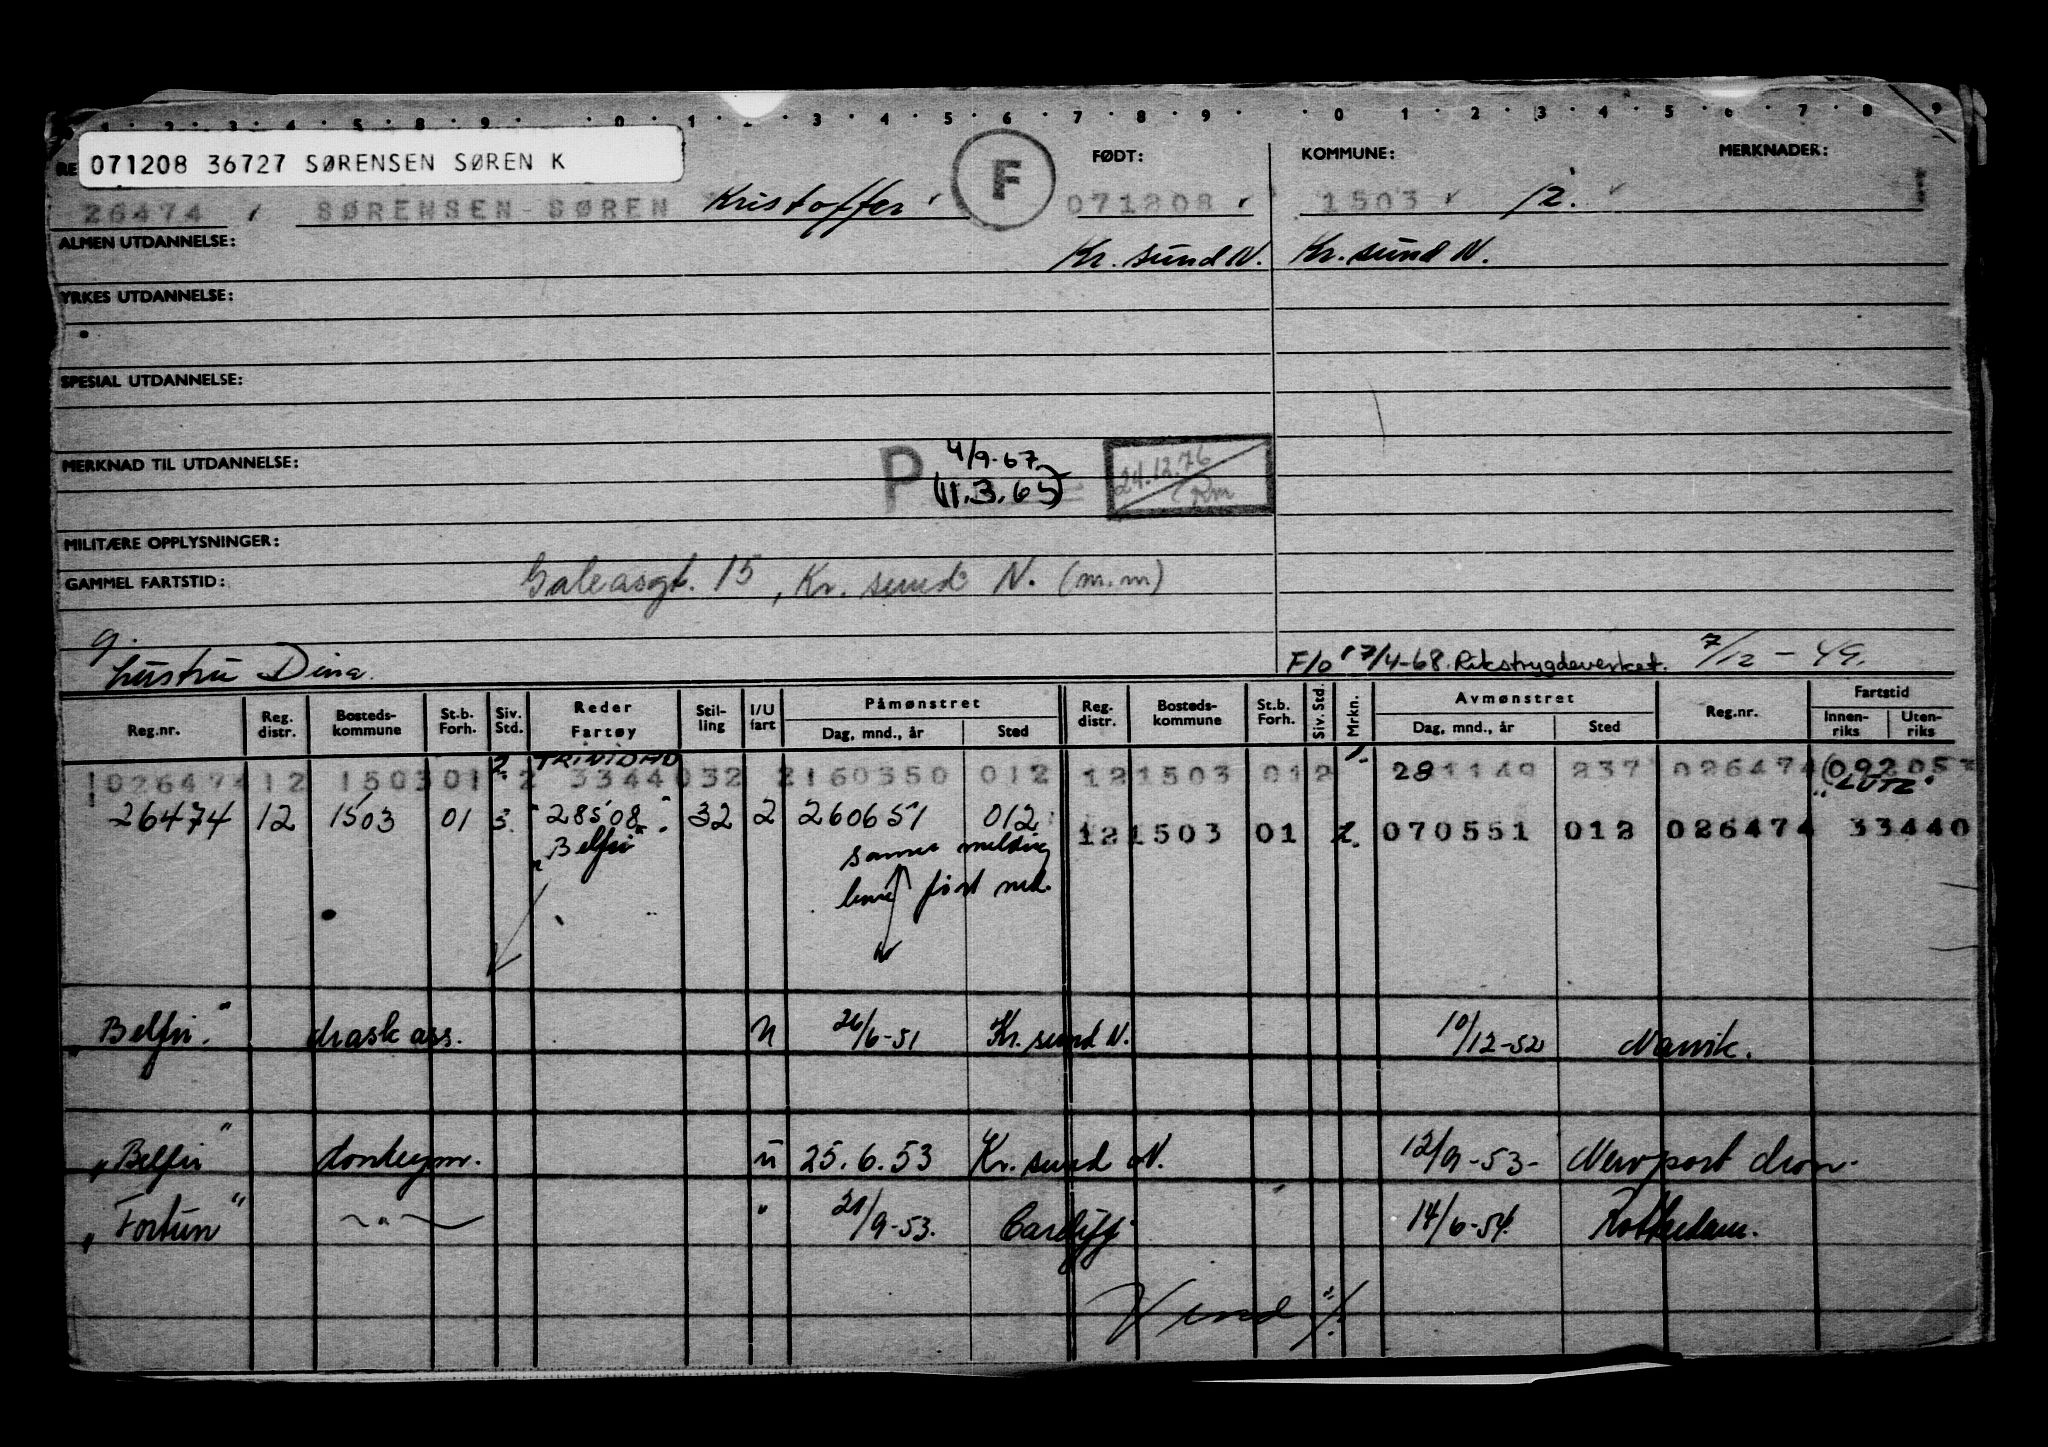 071208 36727 SØRENSEN SØREN K
F
FØDT:
KOMMUNE:
MERKNADER:
26474 SØRENSEN SØREN Kristoffer 071208 1503 12.
ALMEN UTDANNELSE:
Kr. sund N. Kr. sund N.
YRKES UTDANNELSE:
SPESIAL UTDANNELSE:
MERKNAD TIL UTDANNELSE:
P 4/9-67 24.12.76
(11.3.65) Rm
MILITÆRE OPPLYSNINGER:
GAMMEL FARTSTID:
Galeasgt. 15, Kr. sund N. (m.m)
g. hustru Dina.
F/o 17/4-68. Rikstrygdeverket. 7/12-49.
Reg.nr. Reg. distr. Bosteds-kommune St.b. Forh. Siv. Std. Reder Fartøy Stil-ling I/U fart Påmønstret Dag, mnd., år Sted Reg. distr. Bosteds-kommune St.b. Forh. Siv. Std. Mrkn. Avmønstret Dag, mnd., år Sted Reg.nr. Fartstid Innen-riks Uten-riks
TRINIDAD
026474 12 1503 01 2 3344032 2 160350 012 12 1503 01 2 281149 237 026474 092053
"LUTZ"
26474 12 1503 01 3. 28508 32 2 260651 012
12 1503 01 2. 070551 012 026474 33440
"Belfri" samme melding
først med.
"Belfri" mask ass. u 26/6-51 Kr. sund N. 10/12-52 Narvik.
"Belfri" donkeym. u 25.6.53 Kr. sund N. 12/9-53- Newport Mon.
"Fortun" -"- " 21/9-53. Cardiff 14/6-54. Rotterdam.
Vend %.